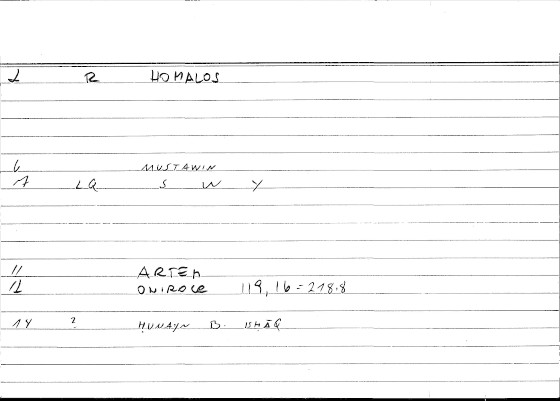 1 R HOMALOS
6 MUSTAWIN
7 LQ S W Y
11 ARTEM
12 ONIROCR 119,16 = 218.8
14 ? ḤUNAYN B. ISḤĀQ